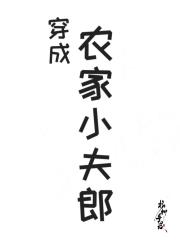 穿成
农家小夫郎